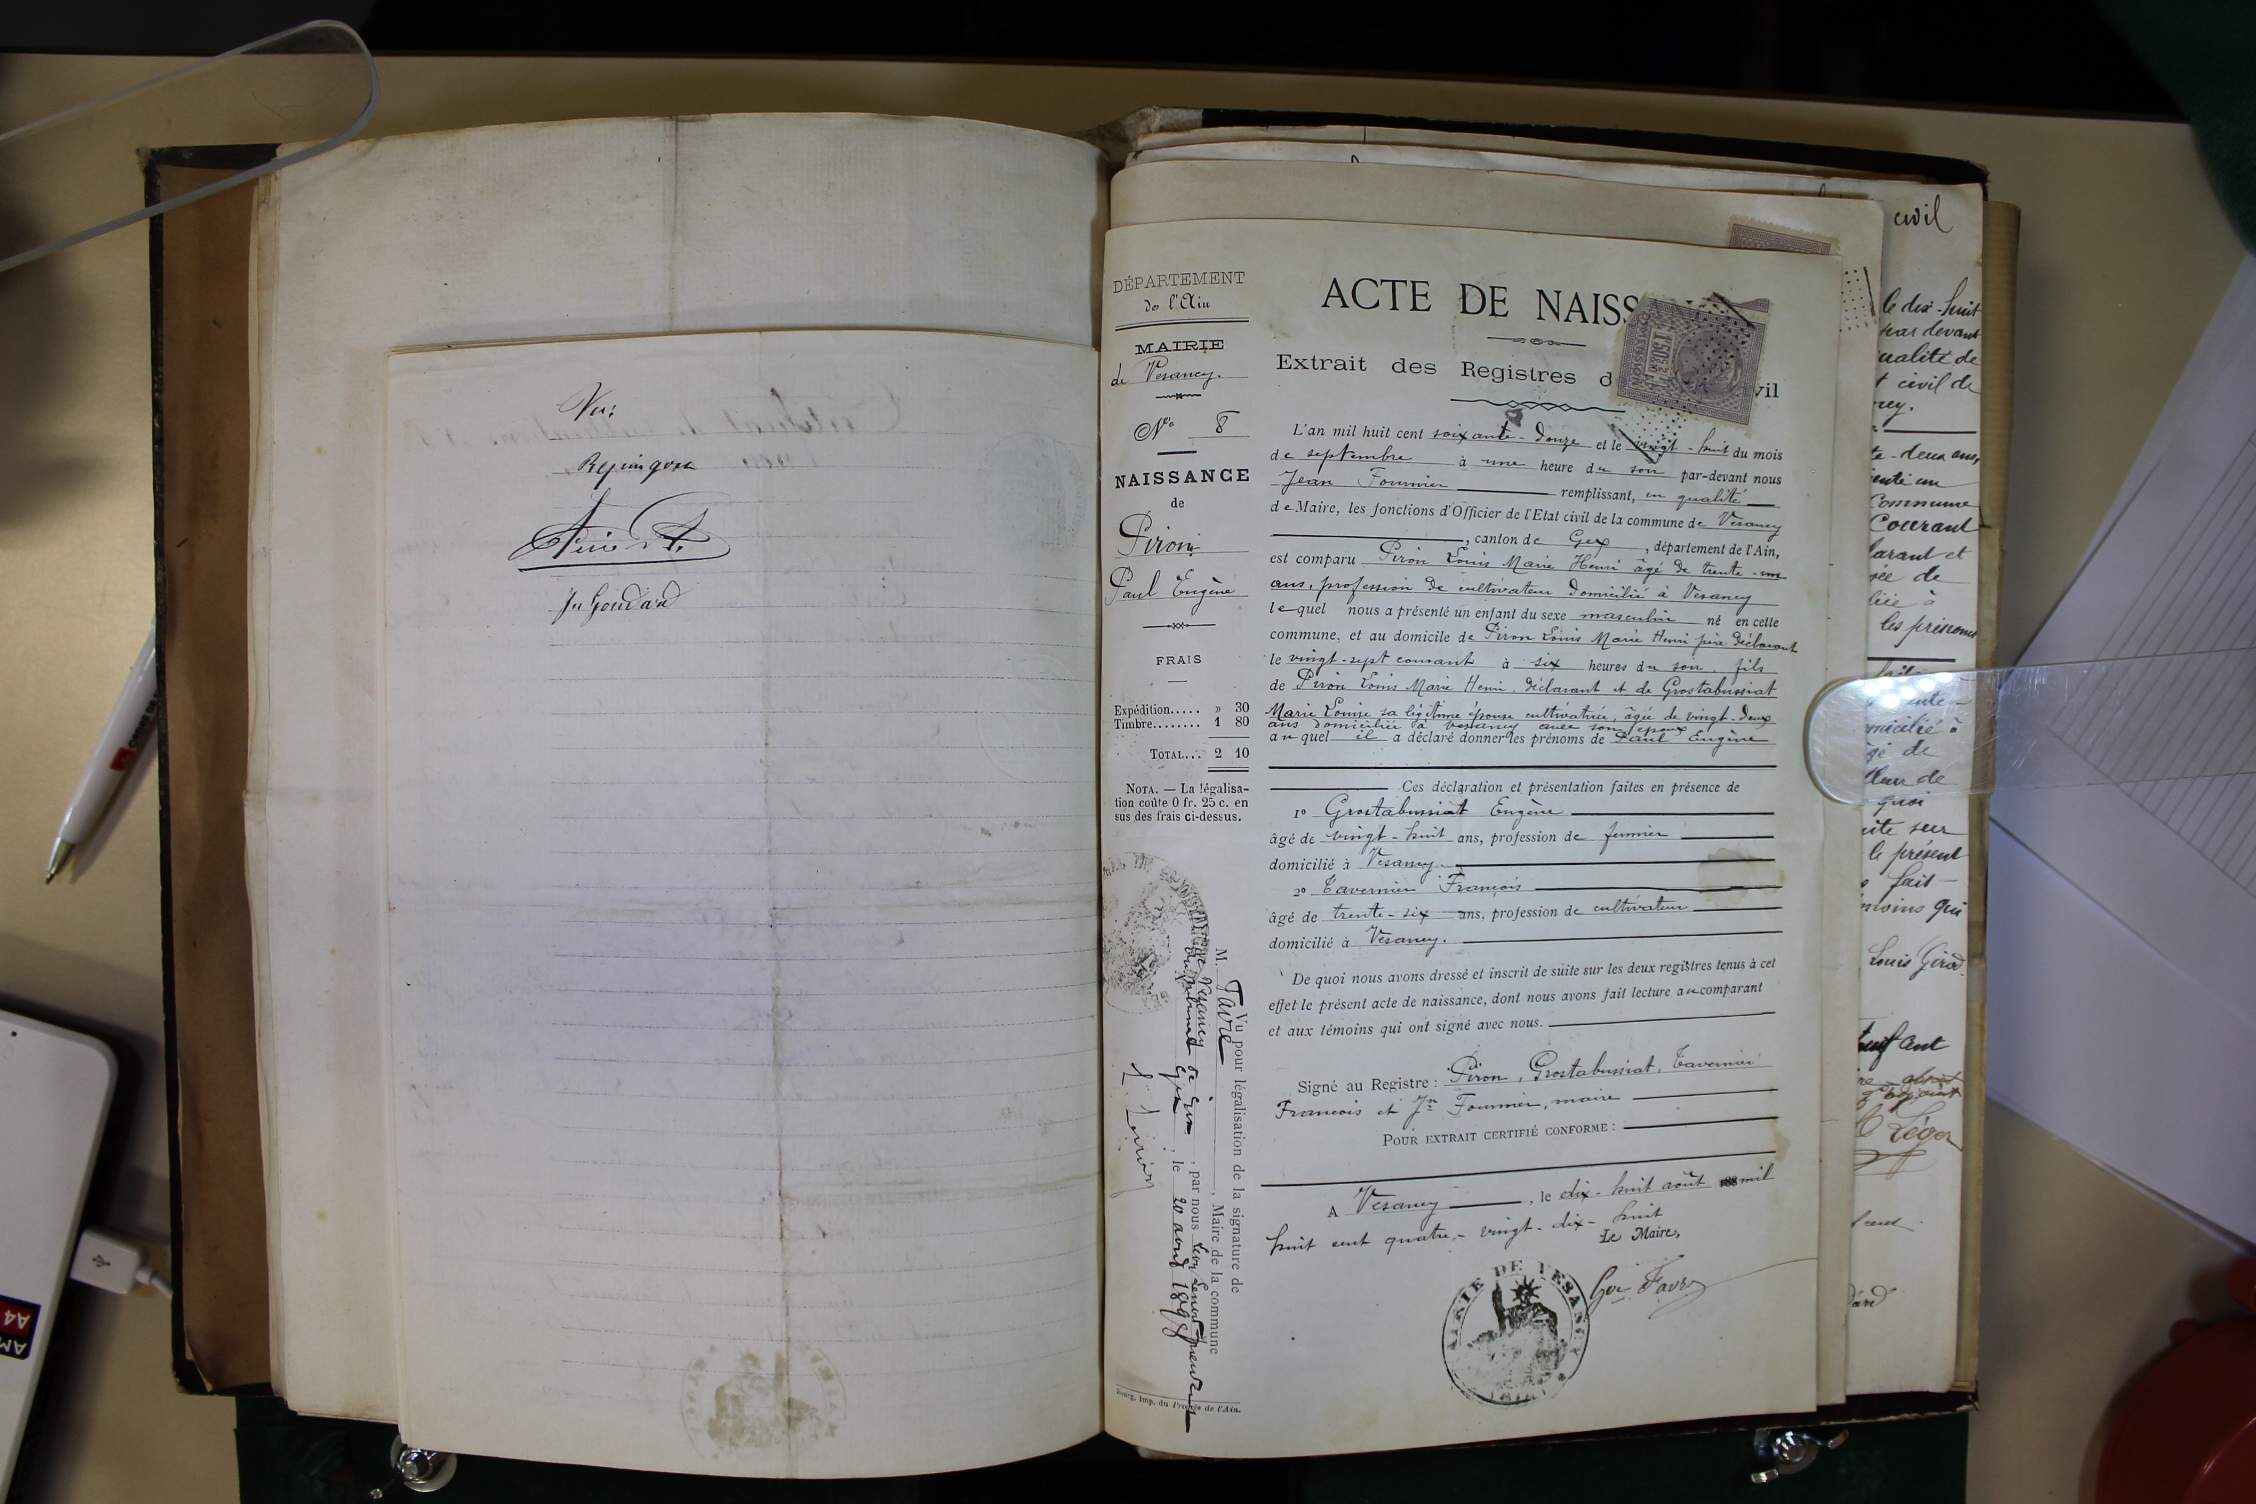 Vu:
Jn Goudard
DÉPARTEMENT
de l'Ain
MAIRIE
de Vesancy.
No. 8
NAISSANCE
de
Piron
Paul Eugène
FRAIS
Expédition..... » 30
Timbre........ 1 80
TOTAL... 2 10
NOTA. — La légalisa-
tion coûte 0 fr. 25 c. en
sus des frais ci-dessus.
Vu pour légalisation de la signature de
M. Favre, Maire de la commune
de Vesancy par nous
du tribunal de Gex, le 20 août 1898
Bourg, Imp. du Progrès de l'Ain.
ACTE DE NAISS
Extrait des Registres d vil
L'an mil huit cent soixante-douze et le vingt-huit du mois
de septembre à une heure du soir par-devant nous
Jean Fournier remplissant, en qualité
de Maire, les fonctions d'Officier de l'Etat civil de la commune de Vesancy
, canton de Gex, département de l'Ain,
est comparu Piron Louis Marie Henri âgé de trente-un
ans, profession de cultivateur domicilié à Vesancy
lequel nous a présenté un enfant du sexe masculin né en cette
commune, et au domicile de Piron Louis Marie Henri père déclarant
le vingt-sept courant à six heures du soir, fils
de Piron Louis Marie Henri, déclarant et de Grostabussiat
Marie Louise sa légitime épouse cultivatrice, âgée de vingt-deux
ans domiciliée à Vesancy avec son époux
auquel il a déclaré donner les prénoms de Paul Eugène
Ces déclaration et présentation faites en présence de
1o Grostabussiat Eugène
âgé de vingt-huit ans, profession de fermier
domicilié à Vesancy.
2o Tavernier François
âgé de trente-six ans, profession de cultivateur
domicilié à Vesancy.
De quoi nous avons dressé et inscrit de suite sur les deux registres tenus à cet
effet le présent acte de naissance, dont nous avons fait lecture au comparant
et aux témoins qui ont signé avec nous.
Signé au Registre: Piron, Grostabussiat, Tavernier
François et Jn Fournier, maire
POUR EXTRAIT CERTIFIÉ CONFORME:
A Vesancy, le dix-huit août 188 mil
huit cent quatre-vingt-dix-huit
Le Maire,
Favre
MAIRIE DE VESANCY
civil
le dix-huit
par devant
qualité de
civil de
te-deux ans,
Commune
Courant
larant et
les prénoms
domicilié à
âgé de
quoi
suite sur
le présent
fait
témoins qui
Louis Girod
Léger
A4